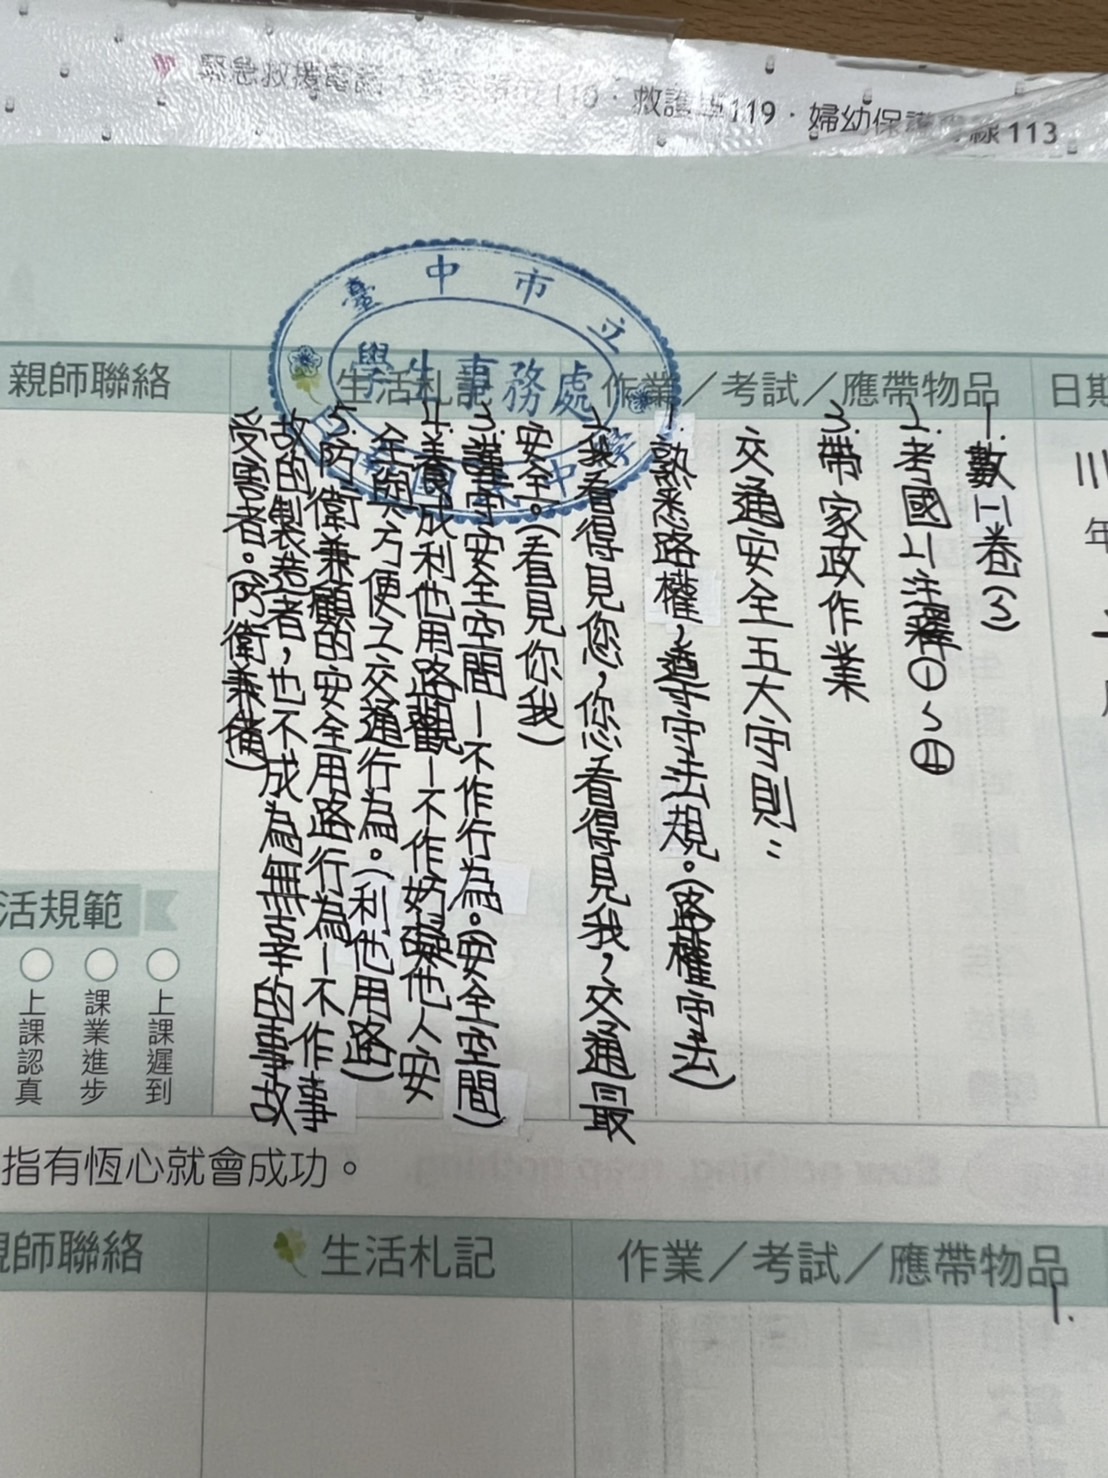 119．婦幼保護專線113
臺中市立
學生事務處
日期
作業／考試／應帶物品
生活札記
親師聯絡
1.數1-1卷(3)
3.帶家政作業
交通安全五大守則：
1.熟悉路權，遵守法規。(路權守法)
2.我看得見您，您看得見我，交通最
安全。(看見你我)
3.謹守安全空間－不作行為。(安全空間)
4.養成利他用路觀－不作妨礙他人安
全與不方便之交通行為。(利他用路)
5.防衛兼顧的安全用路行為－不作事
故的製造者，也不成為無辜的事故
受害者。(防衛兼備)
年
活規範
上課遲到
課業進步
上課認真
指有恆心就會成功。
作業／考試／應帶物品
生活札記
師聯絡
1.